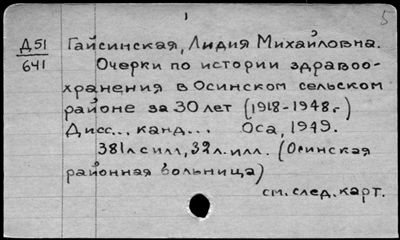 5
Д51
641
Гайсинская, Лидия Михайловна.
Очерки по истории здравоо-
хранения в Осинском сельском
районе за 30 лет (1918-1948.г)
Дисс... канд... Оса, 1949.
381л с илл, 32л. илл. (Осинская
районная больница)
см. след. карт.